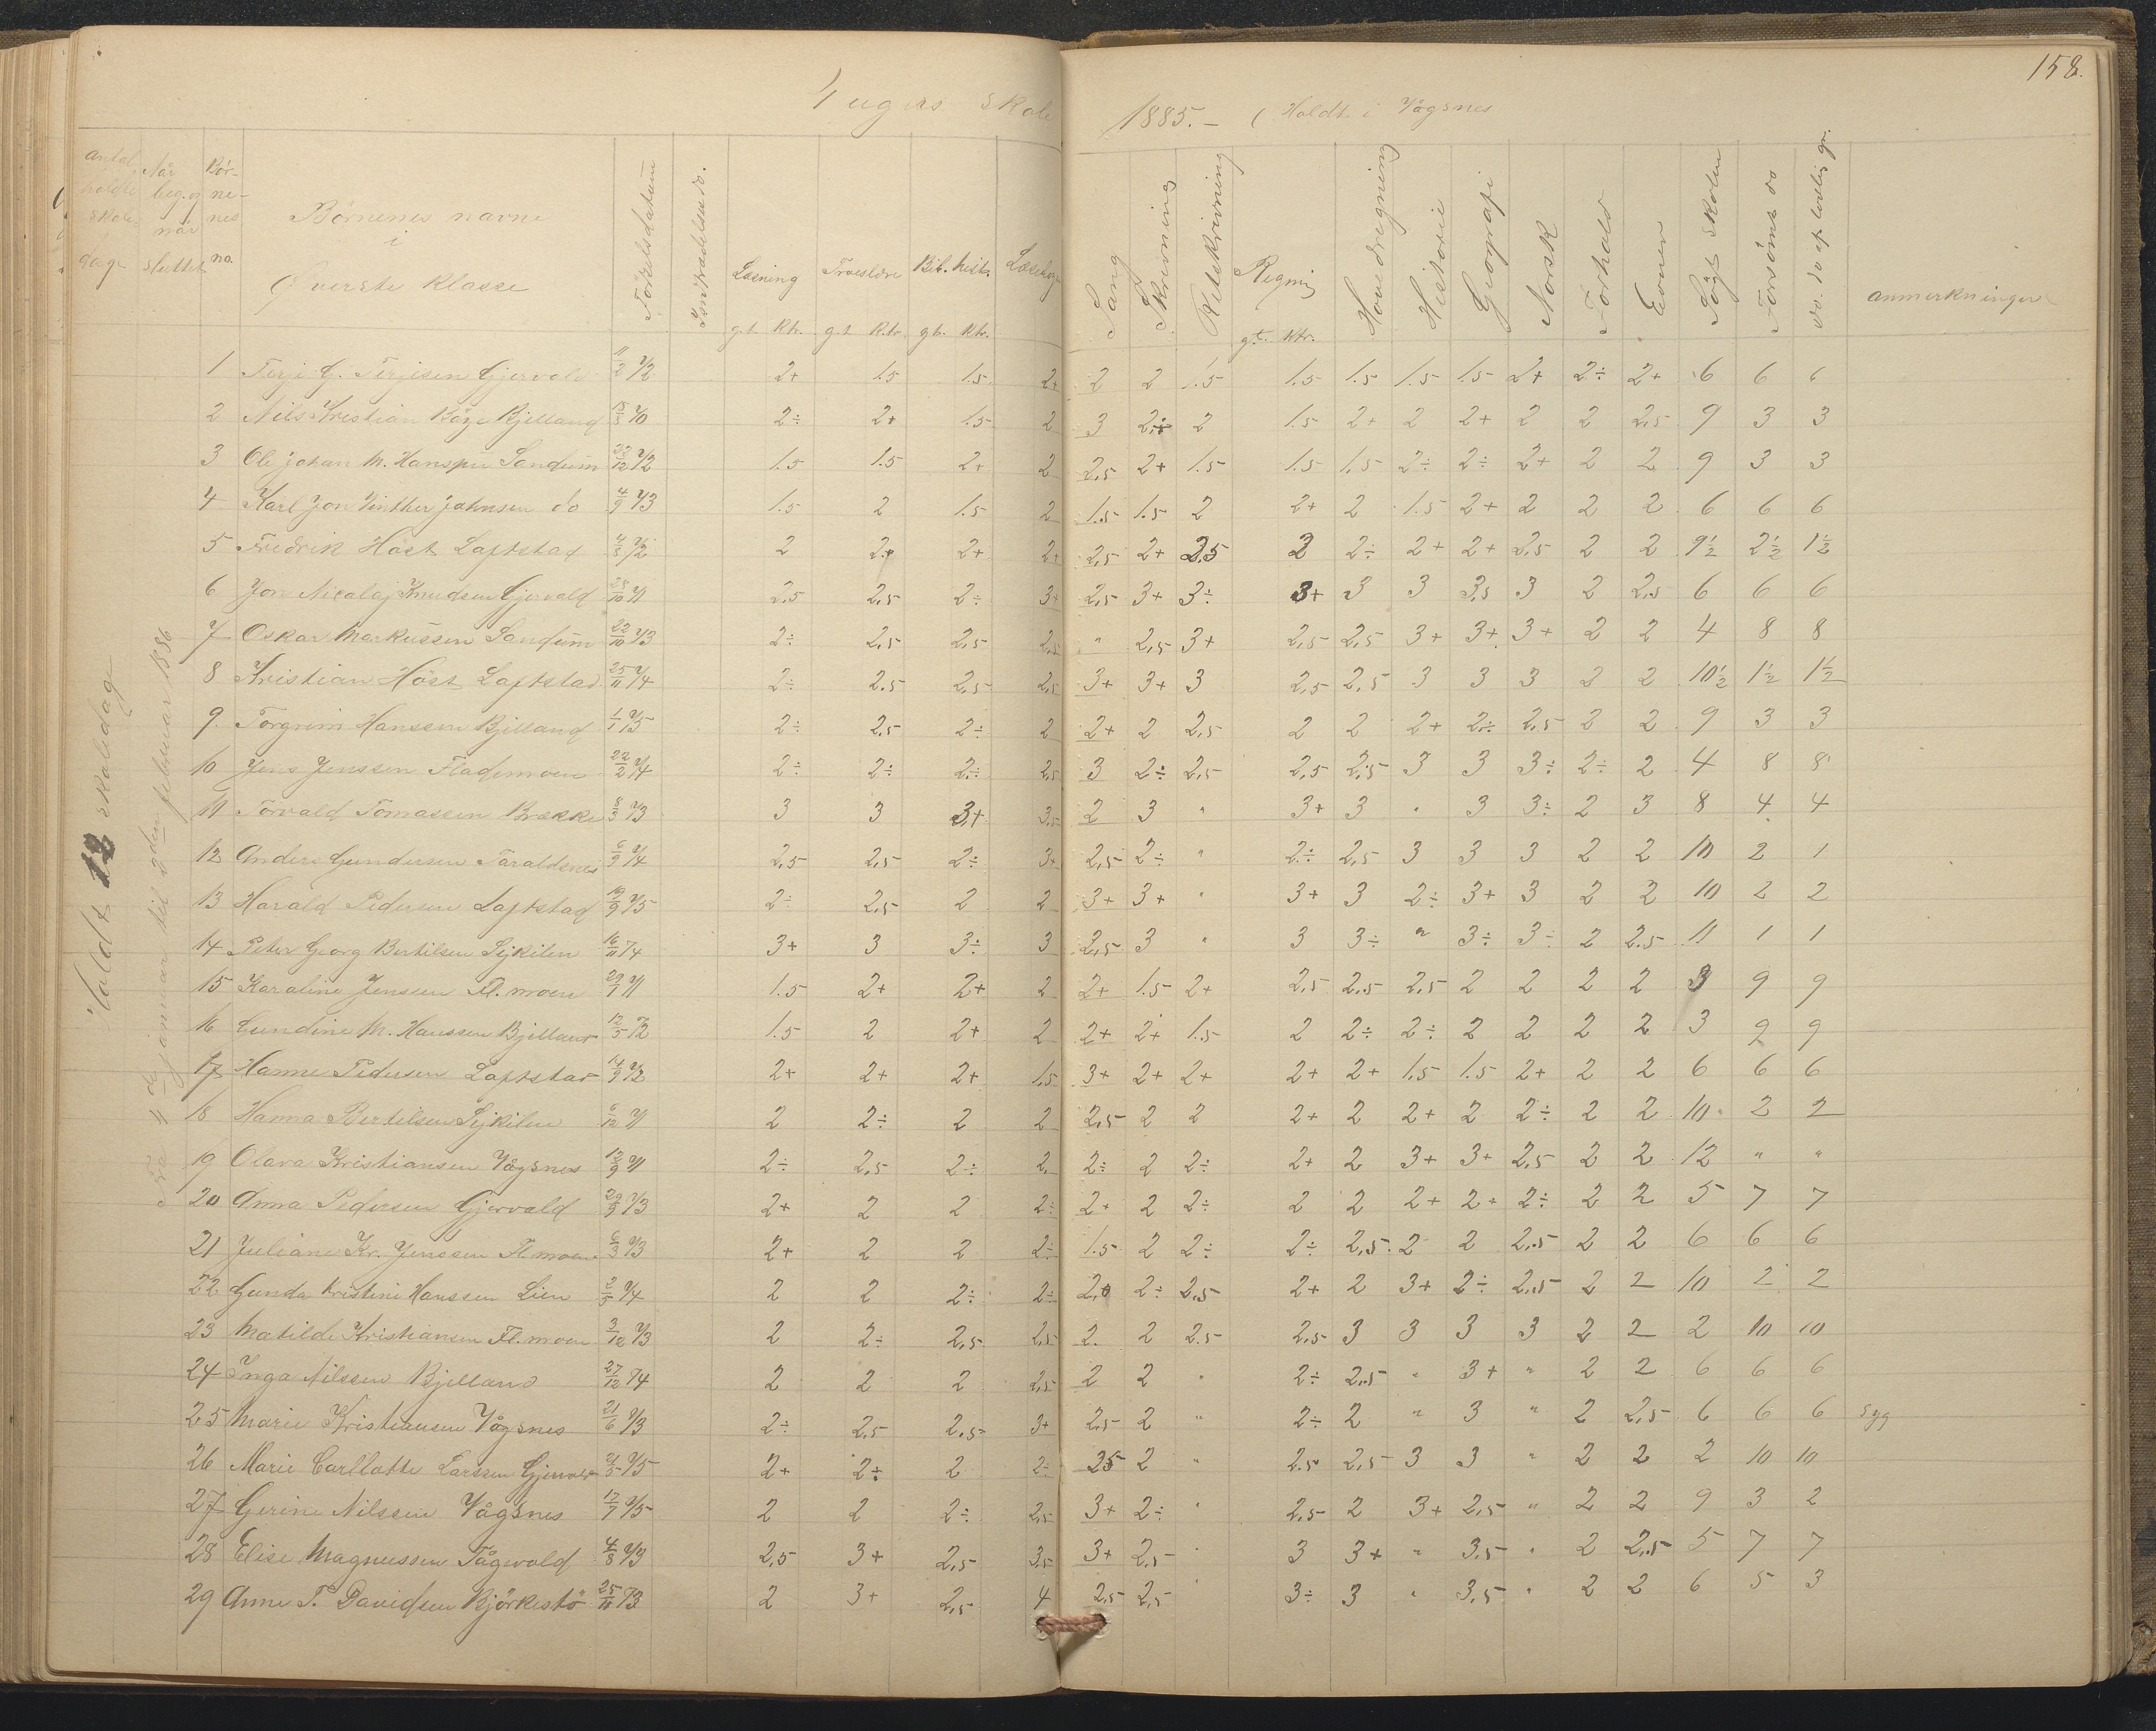 158.
4 ugers skole 1885.- (Holdt i Vågsnes
Antal holdte skoledage
Når beg. og når sluttet
Børnenes no.
Børnenes navne i Øverste Klasse
Födselsdatum
Læsning gt. Ktr.
Troeslære gt. Ktr.
Bib. hist. gt. Ktr.
Læsebog
Sang
Skrivning
Retskrivning
Regning gt. Ktr.
Hovedregning
Historie
Geografi
Norsk
Forhold
Evner
Søgt skolen
Forsömt do
do. do af lovlig gr.
anmerkninger
Holdt 12 skoledage
Fra 11te januar til 2den februar 1886
1 Terje G. Terjesen Gjervold 11/2 72 2+ 1.5 1.5 2+ 2 2 1.5 1.5 1.5 1.5 1.5 2+ 2÷ 2+ 6 6 6
2 Nils Kristian Bøge Bjelland 15/8 70 2÷ 2+ 1.5 2 3 2÷ 2 1.5 2+ 2 2+ 2 2 2.5 9 3 3
3 Ole Johan M. Hanssen Sandum 22/12 72 1.5 1.5 2+ 2 2,5 2+ 1.5 1.5 1.5 2÷ 2÷ 2+ 2 2 9 3 3
4 Karl Jon Vinther Johnsen do 4/9 73 1.5 2 1.5 2 1.5 1.5 2 2+ 2 1.5 2+ 2 2 2 6 6 6
5 Fredrik Höst Laftstad 4/8 72 2 2+ 2+ 2+ 2,5 2+ 2.5 2 2÷ 2+ 2+ 2,5 2 2 9½ 2½ 1½
6 Jon Nicolaj Knudsen Gjervold 28/10 71 2,5 2,5 2÷ 3+ 2,5 3+ 3÷ 3+ 3 3 3,5 3 2 2,5 6 6 6
7 Oskar Markussen Sandum 22/10 73 2÷ 2,5 2,5 2,5 " 2,5 3+ 2,5 2,5 3+ 3+ 3+ 2 2 4 8 8
8 Kristian Höst Laftstad 25/11 74 2÷ 2.5 2,5 2,5 3+ 3+ 3 2,5 2,5 3 3 3 2 2 10½ 1½ 1½
9. Torgrim Hanssen Bjelland 1/1 75 2÷ 2.5 2÷ 2 2+ 2 2,5 2 2 2+ 2÷ 2,5 2 2 9 3 3
10 Jens Jenssen Flademoen 22/2 74 2÷ 2÷ 2÷ 2,5 3 2÷ 2,5 2,5 2,5 3 3 3÷ 2÷ 2 4 8 8
11 Torvald Tomassen Brække 8/3 73 3 3 3+ 3,5 2 3 " 3+ 3 " 3 3÷ 2 3 8 4 4
12 Anders Gundersen Taraldsnes 6/9 74 2,5 2,5 2÷ 3+ 2,5 2÷ " 2÷ 2,5 3 3 3 2 2 10 2 1
13 Harald Pedersen Laftstad 19/9 75 2÷ 2,5 2 2 3+ 3+ " 3+ 3 2÷ 3+ 3 2 2 10 2 2
14 Peter Georg Bertilsen Sejkilen 16/11 74 3+ 3 3÷ 3 2,5 3 " 3 3÷ " 3÷ 3÷ 2 2.5 11 1 1
15 Karoline Jensen Fl.moen 29/1 71 1.5 2+ 2+ 2 2+ 1.5 2+ 2,5 2,5 2,5 2 2 2 2 3 9 9
16 Gundine M. Hanssen Bjelland 12/5 72 1.5 2 2+ 2 2+ 2+ 1.5 2 2÷ 2÷ 2 2 2 2 3 9 9
17 Hanne Pedersen Laftstad 14/9 72 2+ 2+ 2+ 1,5 3+ 2+ 2+ 2+ 2+ 1,5 1.5 2+ 2 2 6 6 6
18 Hanna Bertilsen Sejkilen 6/12 71 2 2÷ 2 2 2,5 2 2 2+ 2 2+ 2 2÷ 2 2 10 2 2
19 Olava Kristiansen Vågsnes 12/9 71 2÷ 2,5 2÷ 2 2÷ 2 2÷ 2+ 2 3+ 3+ 2,5 2 2 12 " "
20 Anna Pedersen Gjervold 29/9 73 2+ 2 2 2÷ 2+ 2 2÷ 2 2 2+ 2+ 2÷ 2 2 5 7 7
21 Juliane Kr. Jenssen Fl.moen 6/3 73 2+ 2 2 2÷ 1.5 2 2÷ 2÷ 2,5 2 2 2,5 2 2 6 6 6
22 Gunda Kristine Hanssen Lien 2/5 74 2 2 2÷ 2÷ 2,0 2÷ 2,5 2+ 2 3+ 2÷ 2,5 2 2 10 2 2
23 Matilde Kristiansen Fl.moen 3/12 73 2 2÷ 2,5 2,5 2 2 2.5 2,5 3 3 3 3 2 2 2 10 10
24 Inga Nilssen Bjelland 27/12 74 2 2 2 2,5 2 2 " 2÷ 2,5 " 3+ " 2 2 6 6 6
25 Marie Kristiansen Vågsnes 21/6 73 2÷ 2,5 2,5 3+ 2,5 2 " 2÷ 2 " 3 " 2 2,5 6 6 6 syg
26 Marie Carllotte Larssen Gjervold 75 2+ 2÷ 2 2÷ 25 2 " 2.5 2,5 3 3 " 2 2 2 10 10
27 Gerine Nilssen Vågsnes 17/7 75 2 2 2÷ 2,5 3+ 2÷ " 2,5 2 3+ 2,5 " 2 2 9 3 2
28 Elise Magnussen Tågevold 4/8 73 2,5 3+ 2,5 3,5 3+ 2,5 " 3 3+ " 3,5 " 2 2,5 5 7 7
29 Anne T. Davidsen Björkestö 25/11 73 2 3+ 2,5 4 2,5 2,5 " 3÷ 3 " 3,5 " 2 2 6 5 3